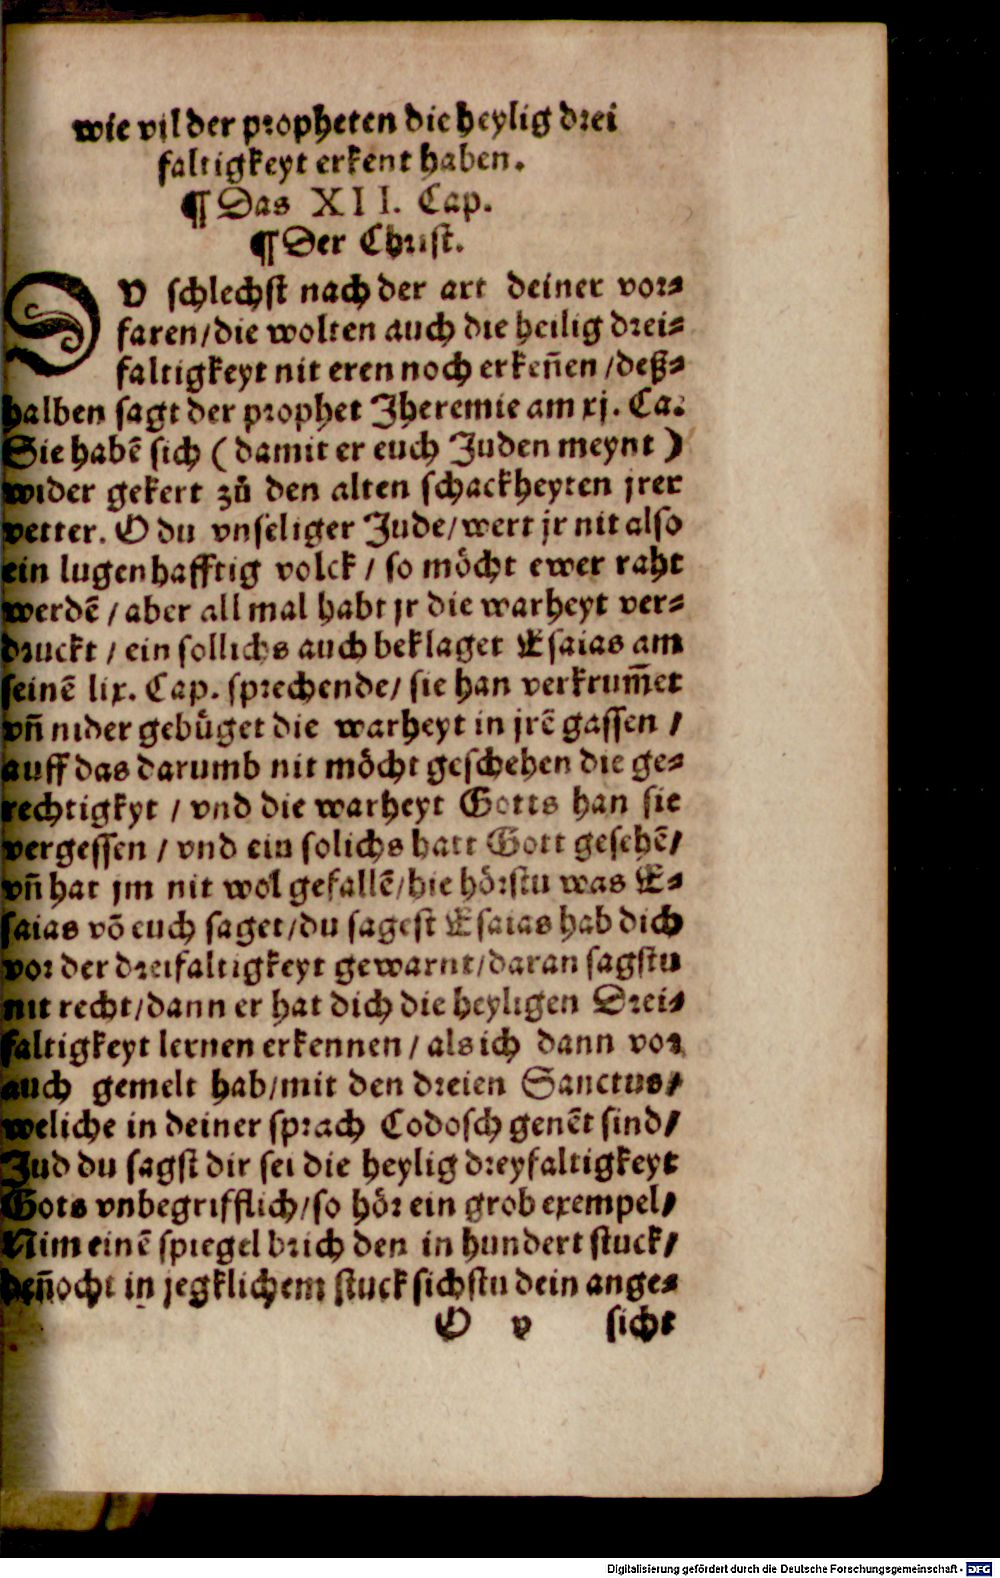 wie vil der propheten die heylig drei
faltigkeyt erkent haben.
¶ Das XII. Cap.
¶ Der Christ.
DV schlechst nach der art deiner vor⸗
faren/die wolten auch die heilig drei⸗
faltigkeyt nit eren noch erkeñen /deß⸗
halben sagt der prophet Jheremie am xj. Ca.
Sie habẽ sich ( damit er euch Juden meynt )
wider gekert zů den alten schackheyten jrer
vetter. O du vnseliger Jude/wert jr nit also
ein lugenhafftig volck / so möcht ewer raht
werdẽ / aber all mal habt jr die warheyt ver⸗
druckt / ein sollichs auch beklaget Esaias am
seinẽ lix. Cap. sprechende/ sie han verkrum̃et
vñ nider gebüget die warheyt in jrẽ gassen /
auff das darumb nit möcht geschehen die ge⸗
rechtigkyt / vnd die warheyt Gotts han sie
vergessen / vnd ein solichs hatt Gott gesehẽ/
vñ hat jm nit wol gefallẽ/hie hörstu was E⸗
saias võ euch saget/du sagest Esaias hab dich
vor der dreifaltigkeyt gewarnt/daran sagstu
nit recht/dann er hat dich die heyligen Drei⸗
faltigkeyt lernen erkennen / als ich dann vor
auch gemelt hab/mit den dreien Sanctus/
weliche in deiner sprach Codosch genẽt sind/
Jud du sagst dir sei die heylig dreyfaltigkeyt
Gots vnbegrifflich/so hör ein grob exempel/
Nim einẽ spiegel brich den in hundert stuck/
deñocht in jegklichem stuck sichstu dein ange⸗
O v sicht
Digitalisierung gefördert durch die Deutsche Forschungsgemeinschaft - DFG